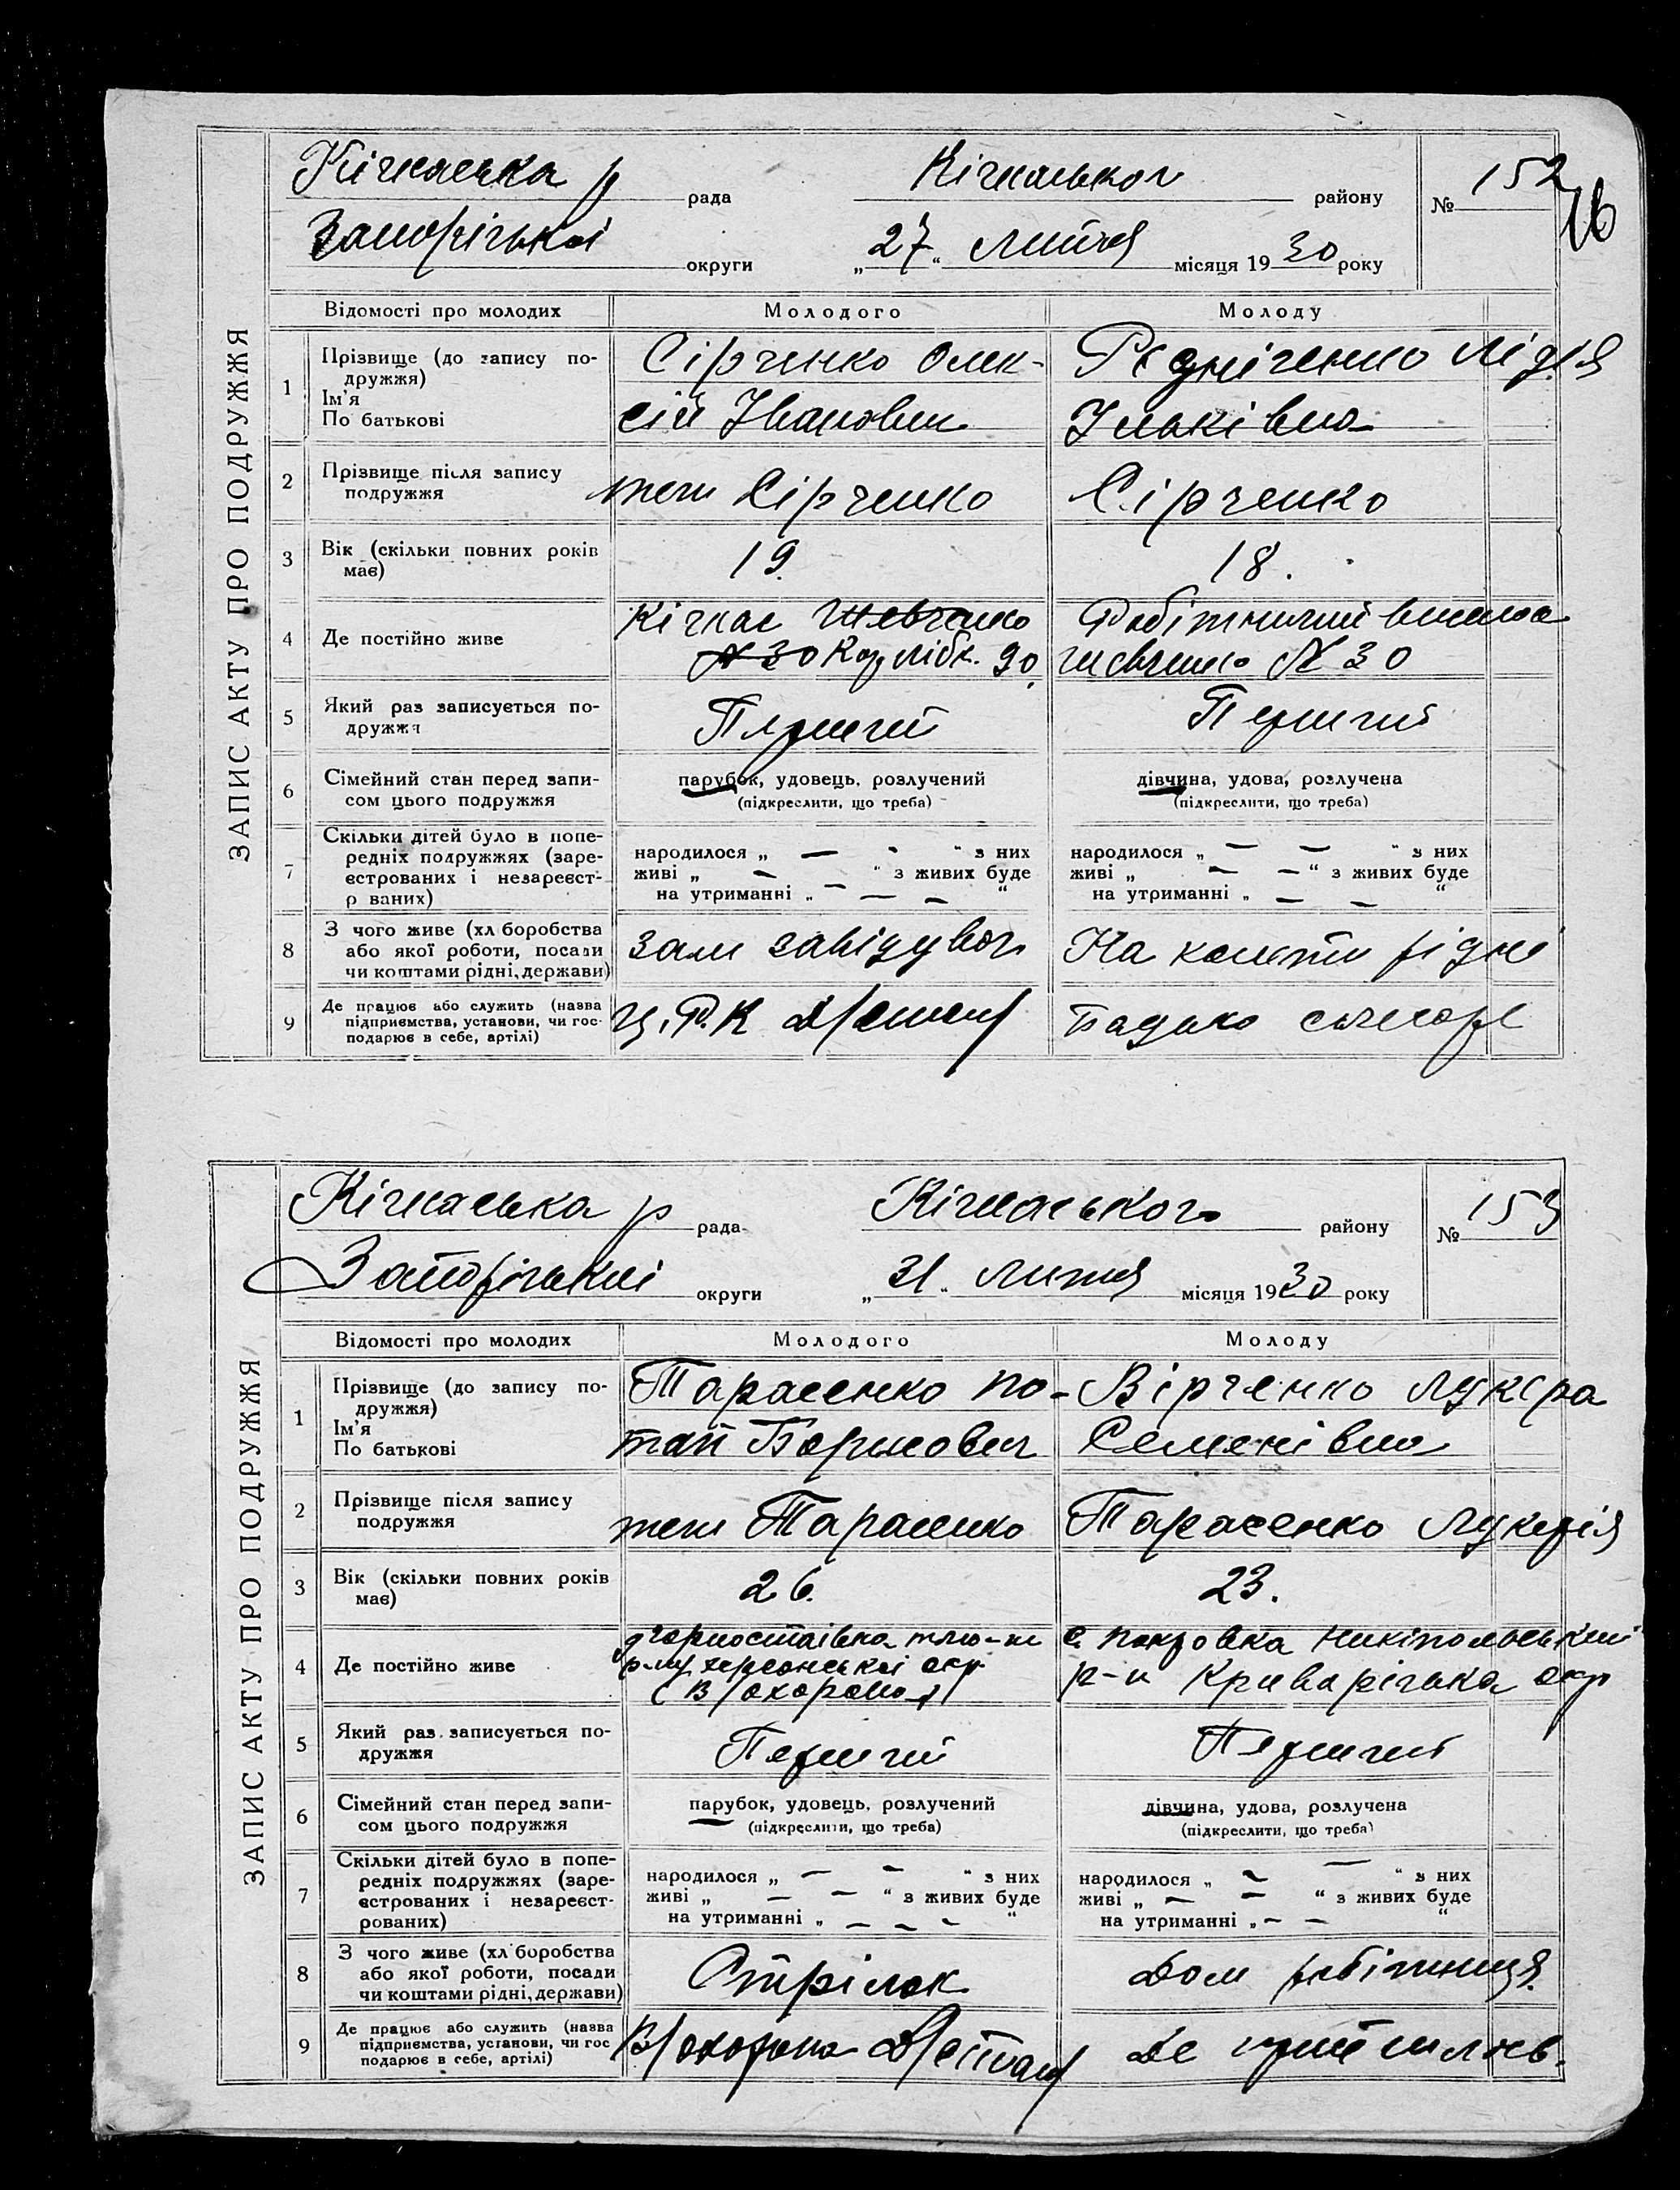 Кічкаська р рада Кічкаського району № 152
16
Запорізької округи „27“ лютня місяця 1930 року
ЗАПИС АКТУ ПРО ПОДРУЖЖЯ
Відомості про молодих Молодого Молоду
1 Прізвище (до запису по-
дружжя)
Ім'я
По батькові
Сірченко Олек-
сій Іванович
Лідія
Ільківна
2 Прізвище після запису
подружжя
теж Сірченко
Сірченко
3 Вік (скільки повних років
має)
19.
18.
4 Де постійно живе
Кічкас Шевченко
№ 30 90
Робітничий
Шевченко № 30
5 Який раз записується по-
дружжя
Перший
Перший
6 Сімейний стан перед запи-
сом цього подружжя
парубок, удовець, розлучений
(підкреслити, що треба)
дівчина, удова, розлучена
(підкреслити, що треба)
7 Скільки дітей було в попе-
редніх подружжях (заре-
єстрованих і незареєст-
р ваних)
народилося „ — - “ з них
живі „ — “ з живих буде
на утриманні „ — — — “
народилося „ — — “ з них
живі „ — — “ з живих буде
на утриманні „ — — “
8 З чого живе (хліборобства
або якої роботи, посади
чи коштами рідні, держави)
Зам завідувоч
На кошти рідні
9 Де працює або служить (назва
підприємства, установи, чи гос-
подарює в себе, артілі)
Ц.Р.К
Батько слюсаре
Кічкаська р рада Кічкаського району № 153
Запорізькиі округи „31“ лютня місяця 1930 року
ЗАПИС АКТУ ПРО ПОДРУЖЖЯ
Відомості про молодих Молодого Молоду
1 Прізвище (до запису по-
дружжя)
Ім'я
По батькові
Тарасенко По-
тап Борисович
Вірченко Лукєра
Семенівна
2 Прізвище після запису
подружжя
теж Тарасенко
Тарасенко Лукерія
3 Вік (скільки повних років
має)
26.
23.
4 Де постійно живе
Горностаівка
р-му херсонськоі окр.
(В/охорона)
с. Покровка Никіпольський
р-н Криварізька окр
5 Який раз записується по-
дружжя
Перший
Перший
6 Сімейний стан перед запи-
сом цього подружжя
парубок, удовець, розлучений
(підкреслити, що треба)
дівчина, удова, розлучена
(підкреслити, що треба)
7 Скільки дітей було в попе-
редніх подружжях (заре-
єстрованих і незареєст-
рованих)
народилося „ — — “ з них
живі „ — — “ з живих буде
на утриманні „ — — — “
народилося „ — — “ з них
живі „ — — “ з живих буде
на утриманні „ — — “
8 З чого живе (хліборобства
або якої роботи, посади
чи коштами рідні, держави)
Стрілок
Дом робітниця.
9 Де працює або служить (назва
підприємства, установи, чи гос
подарює в себе, артілі)
В/охорона
Де прийшлось.